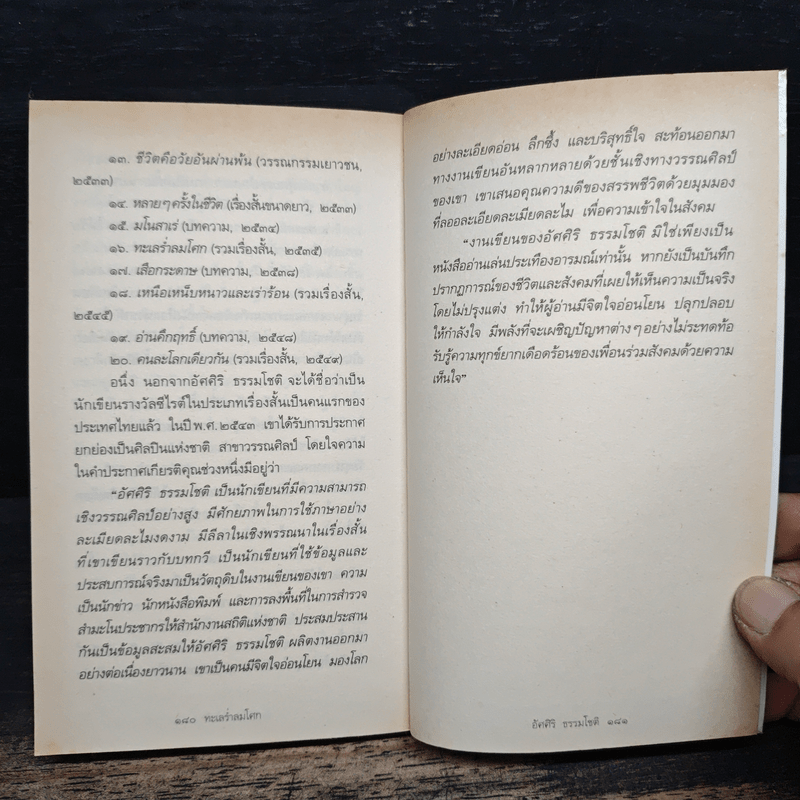 ๑๓. ชีวิตคือวัยอันผ่านพ้น (วรรณกรรมเยาวชน,
๒๕๓๓)
๑๔. หลายๆ ครั้งในชีวิต (เรื่องสั้นขนาดยาว, ๒๕๓๓)
๑๕. มโนสาเร่ (บทความ, ๒๕๓๔)
๑๖. ทะเลร่ำลมโศก (รวมเรื่องสั้น, ๒๕๓๕)
๑๗. เสือกระดาษ (บทความ, ๒๕๓๘)
๑๘. เหนือเหน็บหนาวและเร่าร้อน (รวมเรื่องสั้น,
๒๕๔๕)
๑๙. อ่านคึกฤทธิ์ (บทความ, ๒๕๔๘)
๒๐. คนละโลกเดียวกัน (รวมเรื่องสั้น, ๒๕๔๙)
อนึ่ง นอกจากอัศศิริ ธรรมโชติ จะได้ชื่อว่าเป็น
นักเขียนรางวัลซีไรต์ในประเภทเรื่องสั้นเป็นคนแรกของ
ประเทศไทยแล้ว ในปี พ.ศ. ๒๕๔๓ เขาได้รับการประกาศ
ยกย่องเป็นศิลปินแห่งชาติ สาขาวรรณศิลป์ โดยใจความ
ในคำประกาศเกียรติคุณช่วงหนึ่งมีอยู่ว่า
“อัศศิริ ธรรมโชติ เป็นนักเขียนที่มีความสามารถ
เชิงวรรณศิลป์อย่างสูง มีศักยภาพในการใช้ภาษาอย่าง
ละเมียดละไมงดงาม มีลีลาในเชิงพรรณนาในเรื่องสั้น
ที่เขาเขียนราวกับบทกวี เป็นนักเขียนที่ใช้ข้อมูลและ
ประสบการณ์จริงมาเป็นวัตถุดิบในงานเขียนของเขา ความ
เป็นนักข่าว นักหนังสือพิมพ์ และการลงพื้นที่ในการสำรวจ
สำมะโนประชากรให้สำนักงานสถิติแห่งชาติ ประสมประสาน
กันเป็นข้อมูลสะสมให้อัศศิริ ธรรมโชติ ผลิตงานออกมา
อย่างต่อเนื่องยาวนาน เขาเป็นคนมีจิตใจอ่อนโยน มองโลก
๑๘๐ ทะเลร่ำลมโศก
อย่างละเอียดอ่อน ลึกซึ้ง และบริสุทธิ์ใจ สะท้อนออกมา
ทางงานเขียนอันหลากหลายด้วยชั้นเชิงทางวรรณศิลป์
ของเขา เขาเสนอคุณความดีของสรรพชีวิตด้วยมุมมอง
ที่ลออละเอียดละเมียดละไม เพื่อความเข้าใจในสังคม
“งานเขียนของอัศศิริ ธรรมโชติ มิใช่เพียงเป็น
หนังสืออ่านเล่นประเทืองอารมณ์เท่านั้น หากยังเป็นบันทึก
ปรากฏการณ์ของชีวิตและสังคมที่เผยให้เห็นความเป็นจริง
โดยไม่ปรุงแต่ง ทำให้ผู้อ่านมีจิตใจอ่อนโยน ปลุกปลอบ
ให้กำลังใจ มีพลังที่จะเผชิญปัญหาต่างๆ อย่างไม่ระทดท้อ
รับรู้ความทุกข์ยากเดือดร้อนของเพื่อนร่วมสังคมด้วยความ
เห็นใจ”
อัศศิริ ธรรมโชติ ๑๘๑